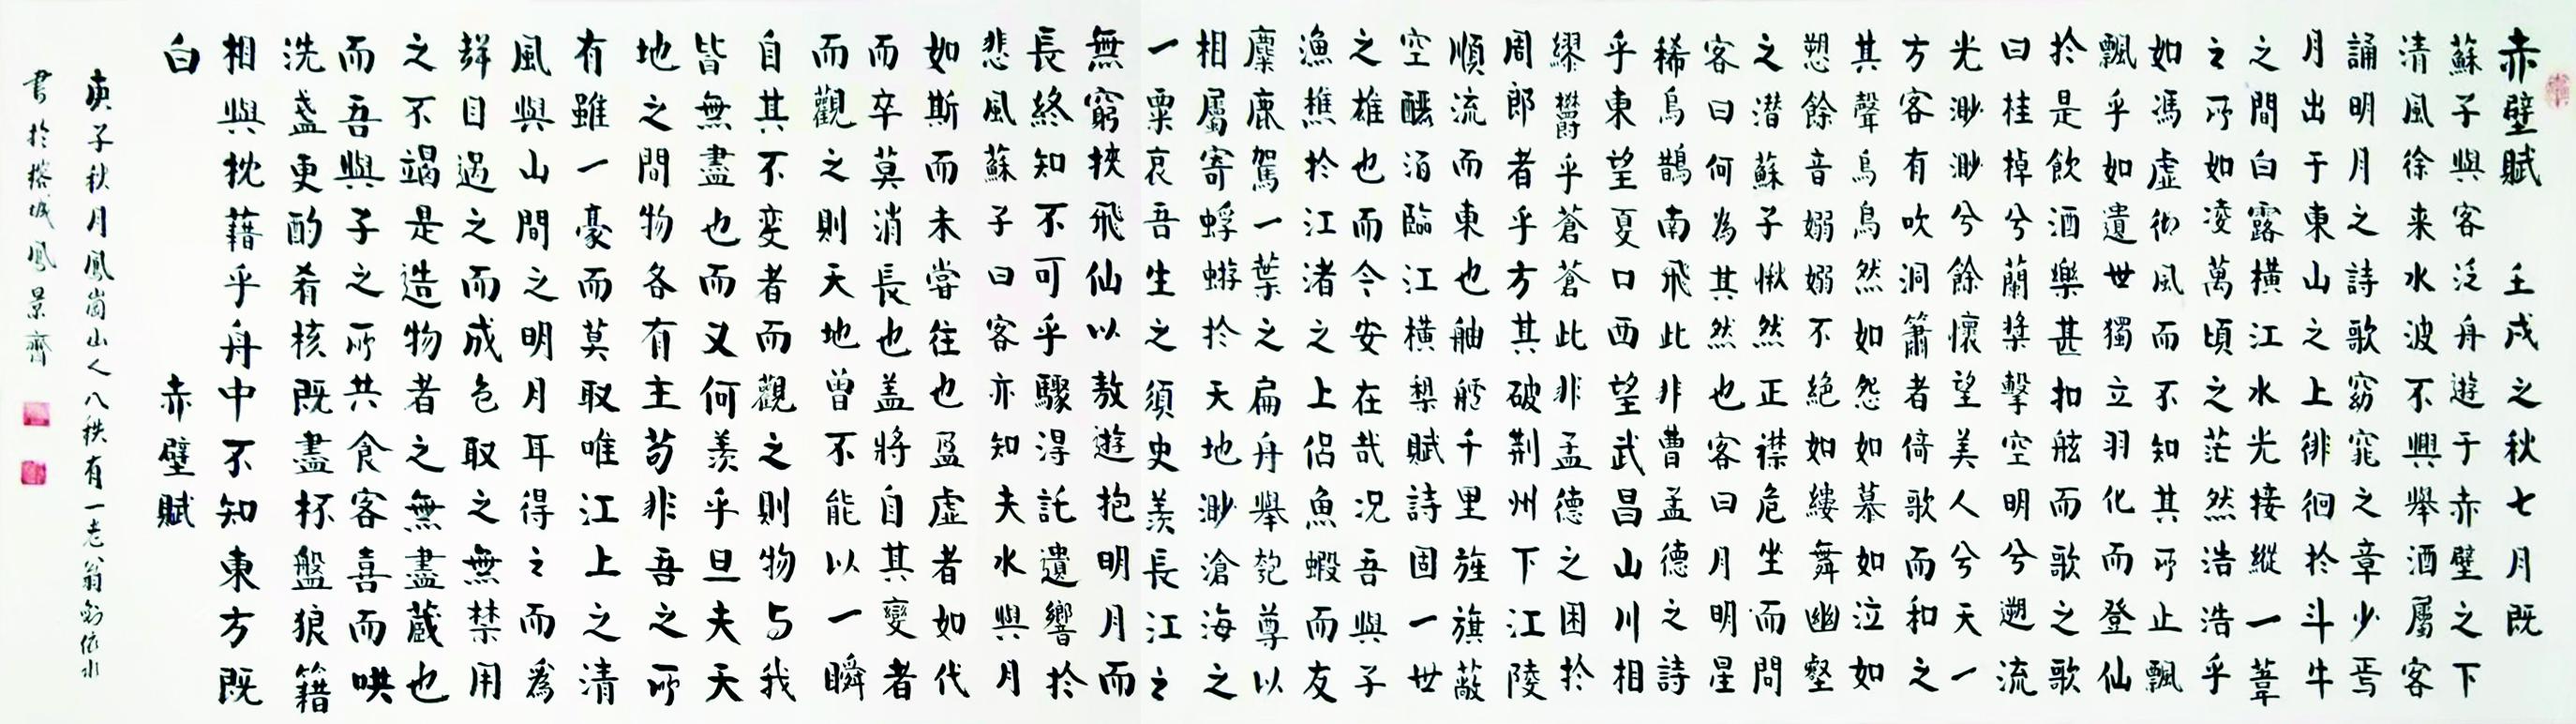 赤壁賦 壬戌之秋七月既
蘇子與客泛舟遊于赤壁之下
清風徐来水波不興舉酒屬客
誦明月之詩歌窈窕之章少焉
月出于東山之上徘徊於斗牛
之間白露橫江水光接縱一葦
之所如凌萬頃之茫然浩浩乎
如馮虛御風而不知其所止飄
飄乎如遺世獨立羽化而登仙
於是飲酒樂甚扣舷而歌之歌
曰桂棹兮蘭槳擊空明兮遡流
光渺渺兮餘懷望美人兮天一
方客有吹洞簫者倚歌而和之
其聲烏烏然如怨如慕如泣如
愬餘音嫋嫋不絕如縷舞幽壑
之潛蘇子愀然正襟危坐而問
客曰何為其然也客曰月明星
稀烏鵲南飛此非曹孟德之詩
乎東望夏口西望武昌山川相
繆鬱乎蒼蒼此非孟德之困於
周郎者乎方其破荆州下江陵
順流而東也舳艫千里旌旗蔽
空釃酒臨江橫槊賦詩固一世
之雄也而今安在哉况吾與子
漁樵於江渚之上侶魚蝦而友
麋鹿駕一葉之扁舟舉匏尊以
相屬寄蜉蝣於天地渺滄海之
一粟哀吾生之須臾羨長江之
無窮挾飛仙以敖遊抱明月而
長終知不可乎驟得託遺響於
悲風蘇子曰客亦知夫水與月
如斯而未嘗往也盈虛者如代
而卒莫消長也盖將自其變者
而觀之則天地曾不能以一瞬
自其不変者而觀之則物与我
皆無盡也而又何羨乎旦夫天
地之間物各有主苟非吾之所
有雖一豪而莫取唯江上之清
風與山間之明月耳得之而為
聲目遇之而成色取之無禁用
之不竭是造物者之無盡藏也
而吾與子之所共食客喜而哄
洗盞更酌肴核既盡杯盤狼籍
相與枕藉乎舟中不知東方既
白 赤壁賦
庚子秋月鳳崗山人八秩有一老翁劉依水
書於榕城鳳景齋